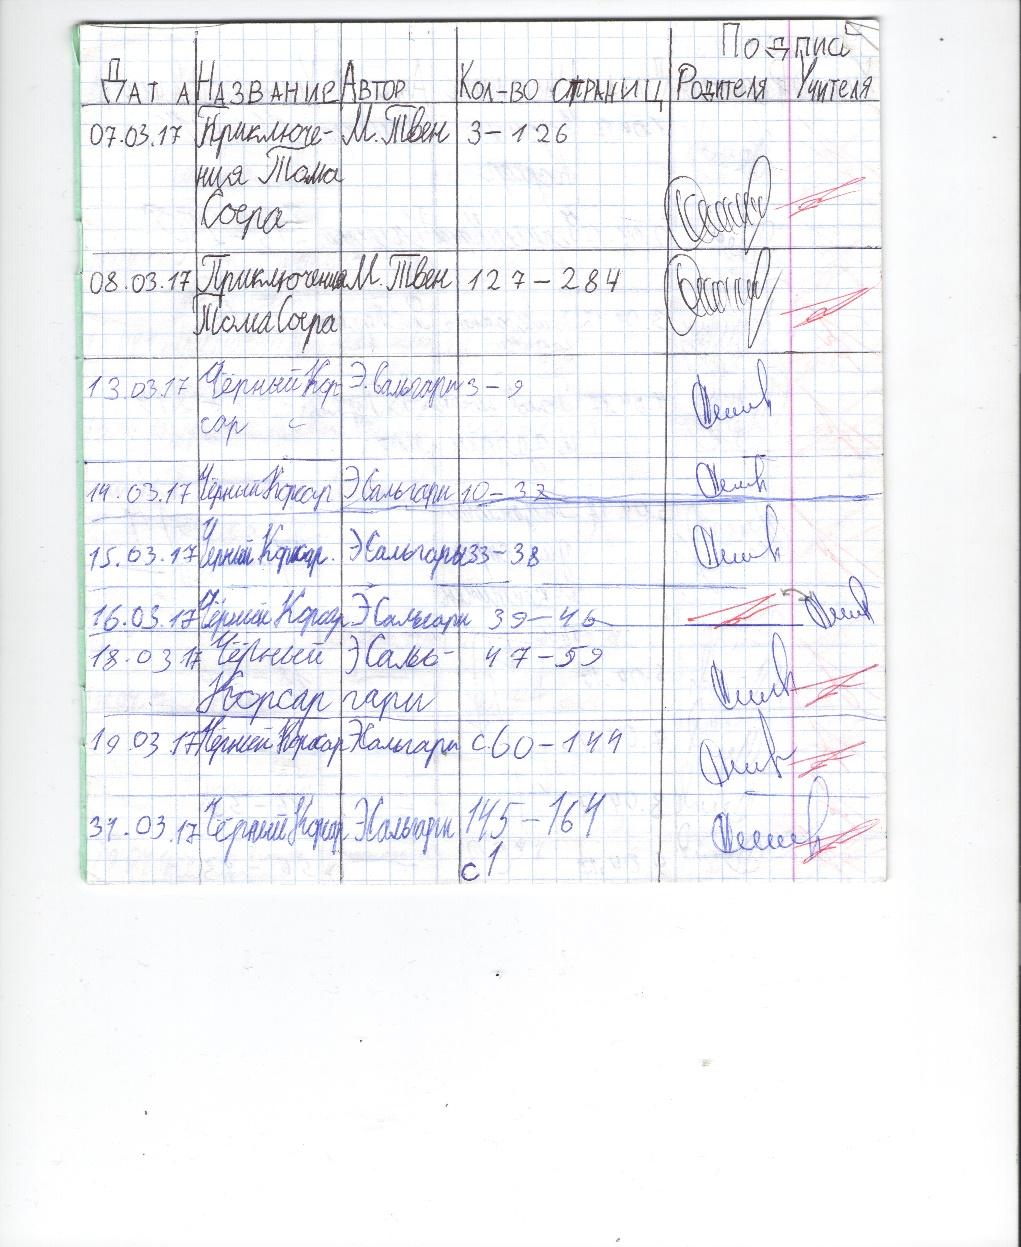 Подпись
Дата Название Автор Кол-во страниц Родителя Учителя
07.03.17 Приключе- М. Твен 3-126
ния Тома
Соера
08.03.17 Приключения М. Твен 127-284
Тома Соера
13.03.17 Чёрный Кор Э. Сальгари 3-9
сар
14.03.17 Чёрный Корсар Э Сальгари 10-32
15.03.17 Чёрный Корсар. Э Сальгари 33-38
16.03.17 Чёрный Корсар Э Сальгари 39-46
18.03 17 Чёрный Э Саль- 47-59
Корсар гари
19.03.17 Чёрный Корсар Э Сальгари с 60-144
31.03.17 Чёрный Корсар Э Сальгари 145-164
с 1